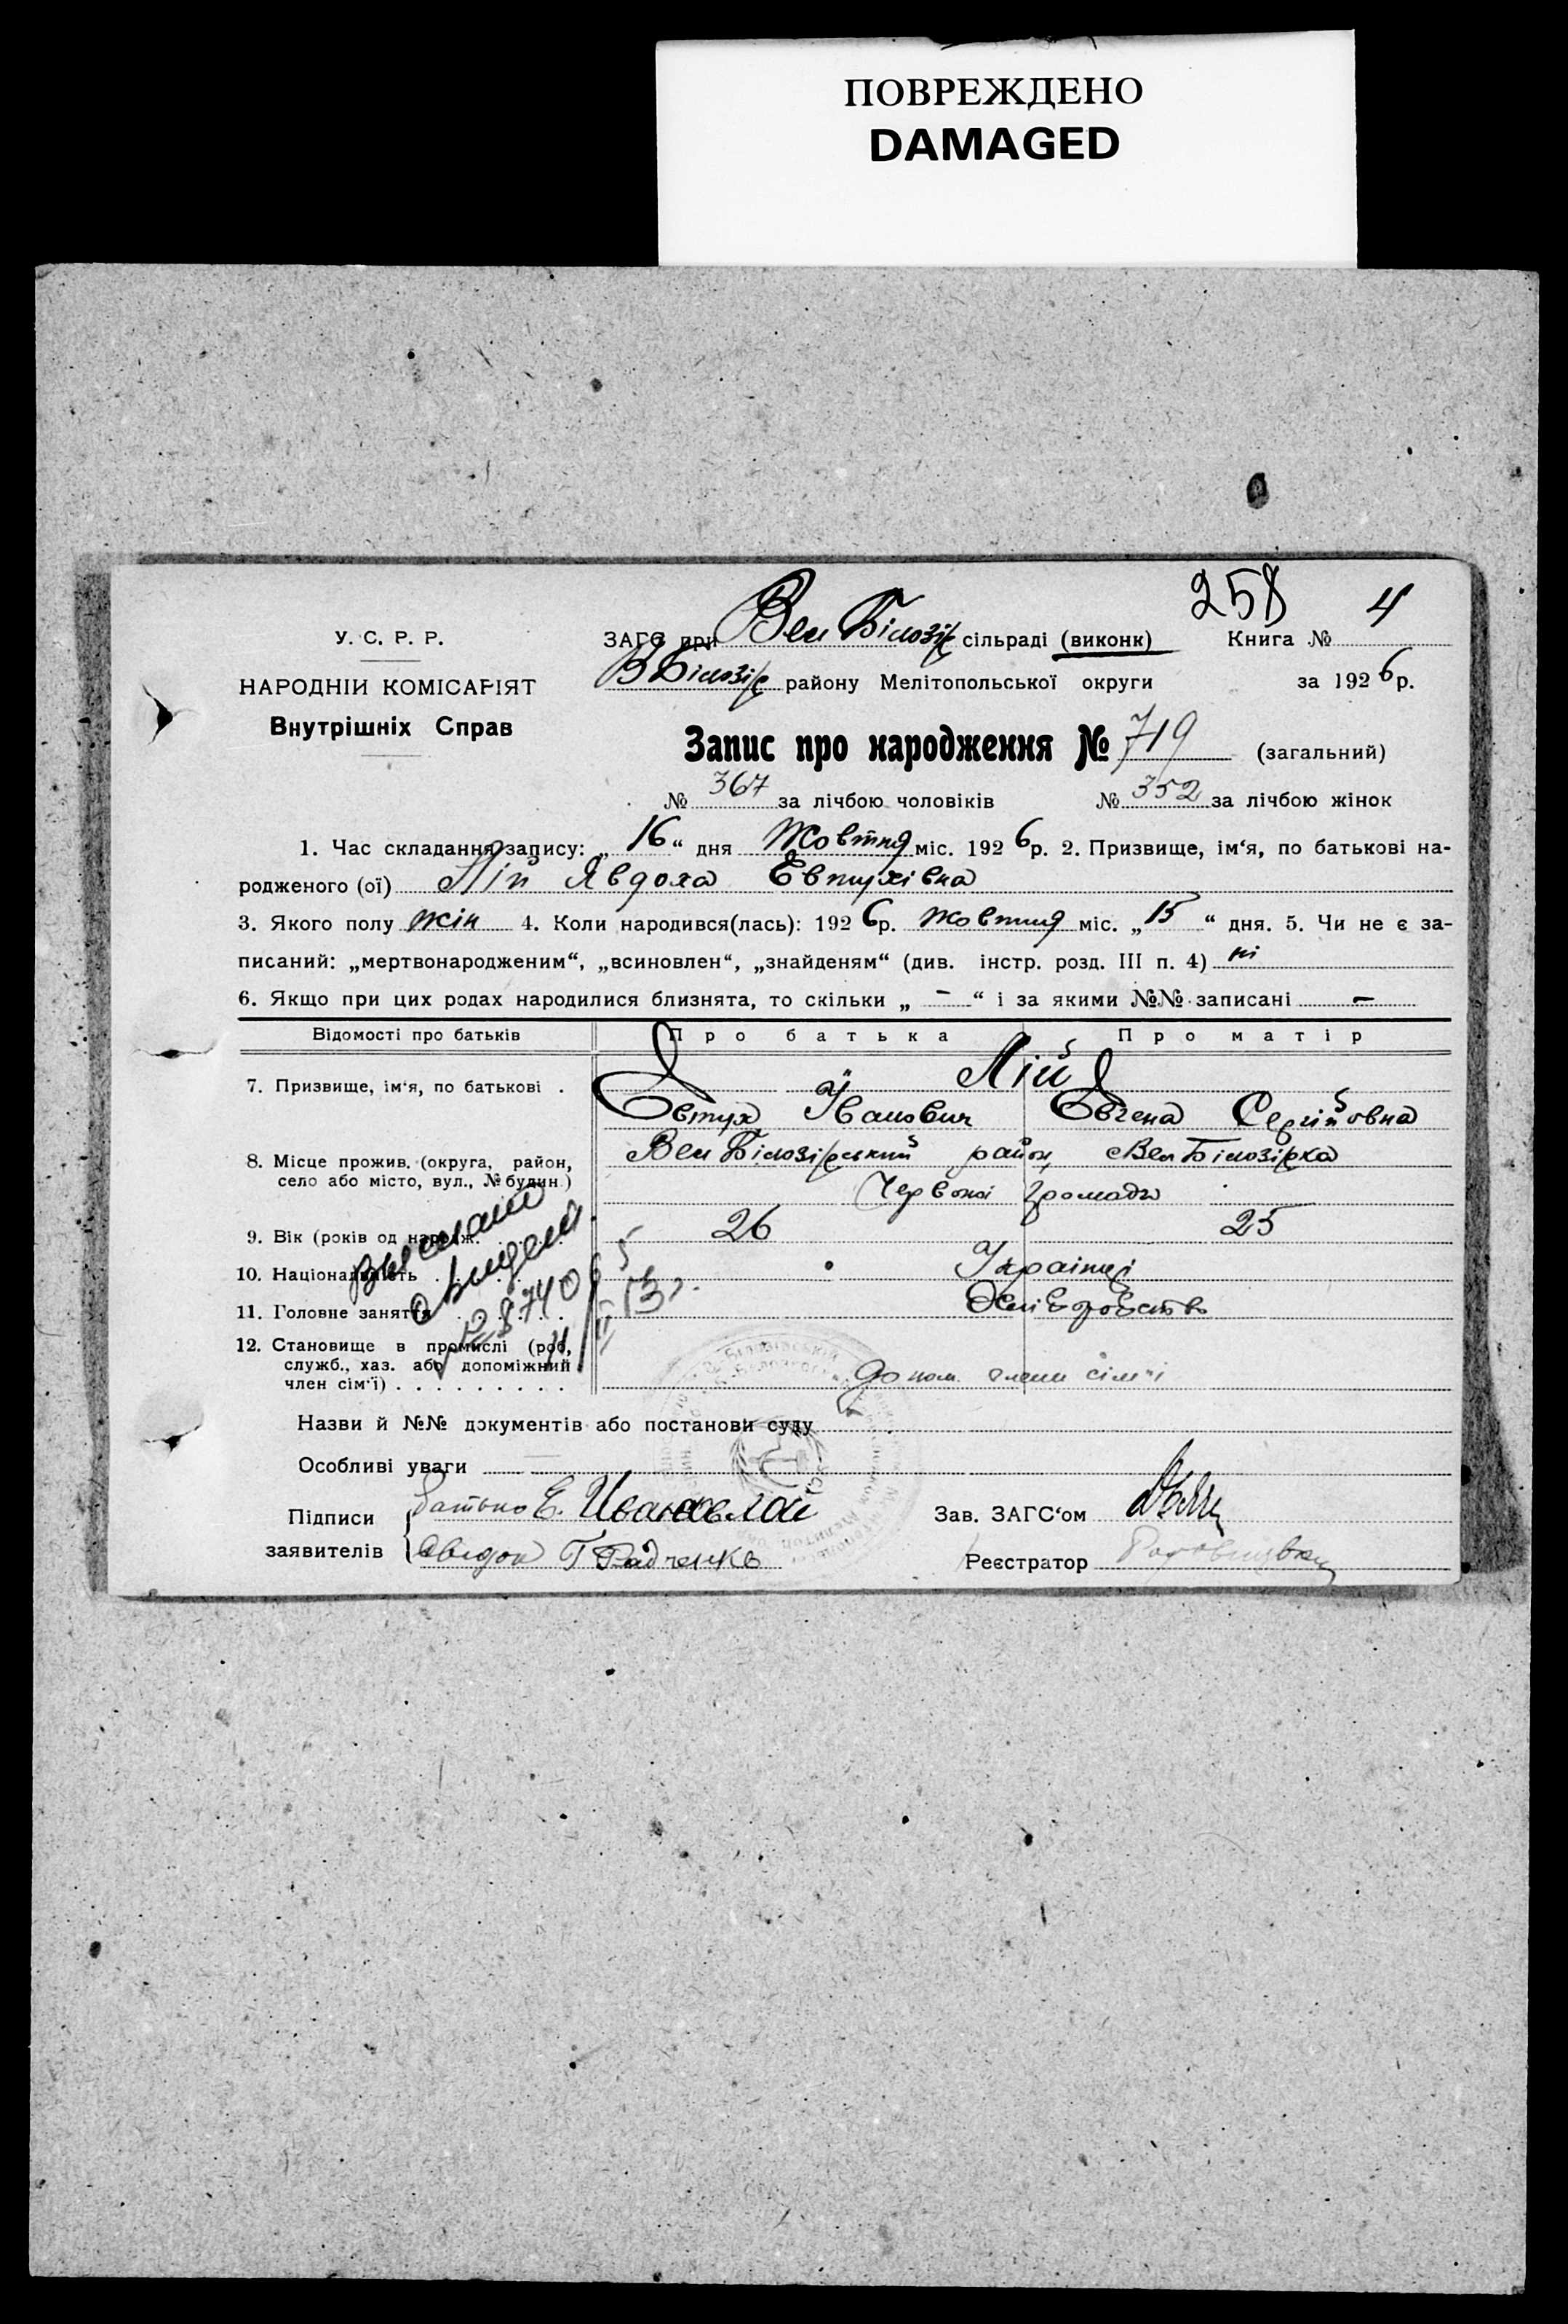 ПОВРЕЖДЕНО
DAMAGED
258
У. С. Р. Р.
НАРОДНІЙ КОМІСАРІЯТ
Внутрішніх Справ
ЗАГС при Вел Білозір сільраді (виконк) Книга № 4
В Білозір району Мелітопольської округи за 1926 р.
Запис про народження № 719 (загальний)
№ 367 за лічбою чоловіків № 352 за лічбою жінок
1. Час складання запису: „16“ дня Жовтня міс. 1926 р. 2. Призвище, ім‘я, по батькові на-
родженого (ої) Лій Явдоха Евтухівна
3. Якого полу жін 4. Коли народився(лась): 1926 р. Жовтня міс. „15“ дня. 5. Чи не є за-
писаний: „мертвонародженим“, „всиновлен“, „знайденям“ (див. інстр. розд. III п. 4) ні
6. Якщо при цих родах народилися близнята, то скільки „ - “ і за якими №№ записані -
Відомості про батьків Про батька Про матір
7. Призвище, ім‘я, по батькові . Лій
Евтух Іванович Евгена Сергійовна
8. Місце прожив. (округа, район, Вел Білозірський район, Вел Білозірка
село або місто, вул., № будин.) Червоної громади
9. Вік (років од нарoдж. 26 25
10. Національність Українці
11. Головне заняття Хліборобство
12. Становище в промислі (роб,
служб., хаз. або допоміжний
член сім‘ї) допом. члени сімʼї
Назви й №№ документів або постанови суду
Особливі уваги
Підписи батько Е. Иванов. Лай Зав. ЗАГС‘ом
заявителів Свидок Г Радченко Реєстратор